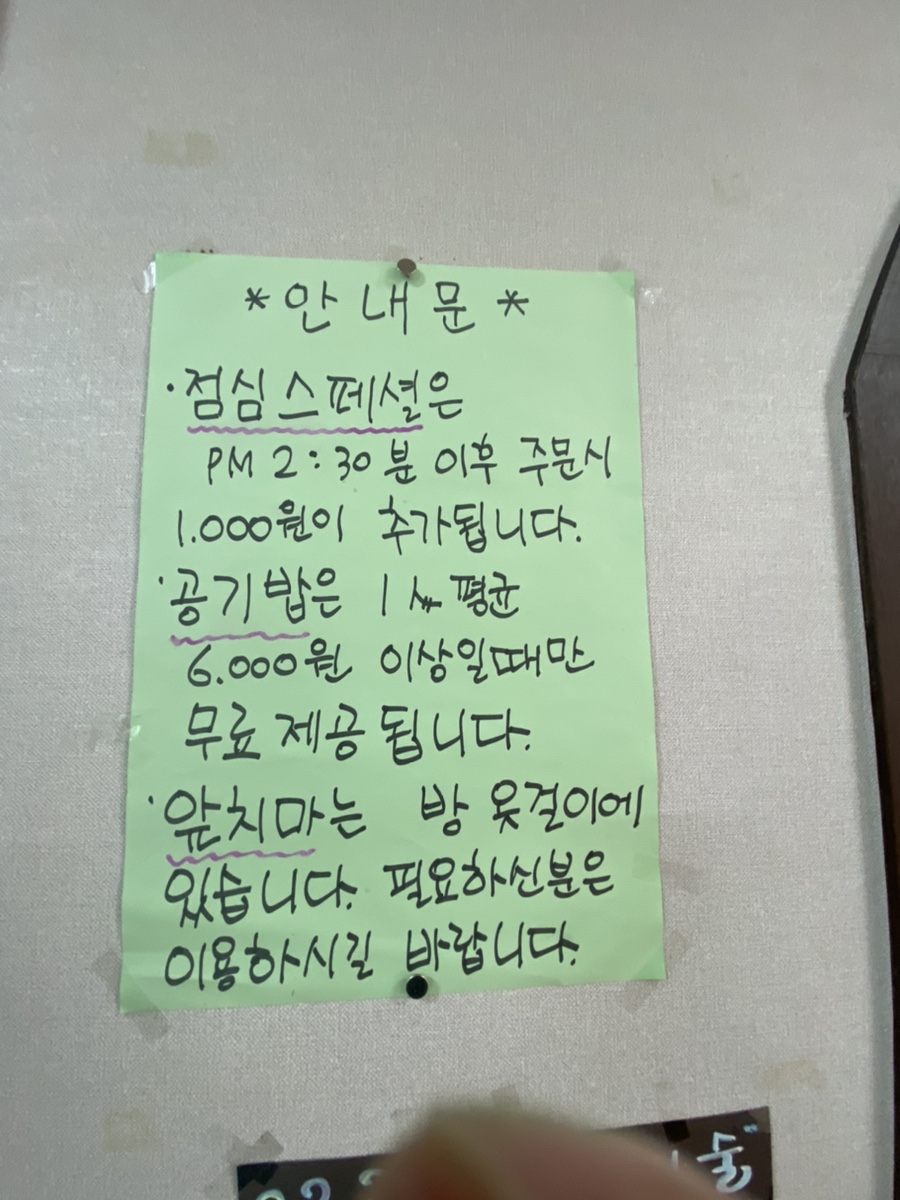 * 안내문 *
· 점심 스페셜은
PM 2:30분 이후 주문시
1.000원이 추가됩니다.
· 공기밥은 1人 평균
6.000원 이상일때만
무료 제공 됩니다.
· 앞치마는 방 옷걸이에
있습니다. 필요하신분은
이용하시길 바랍니다.